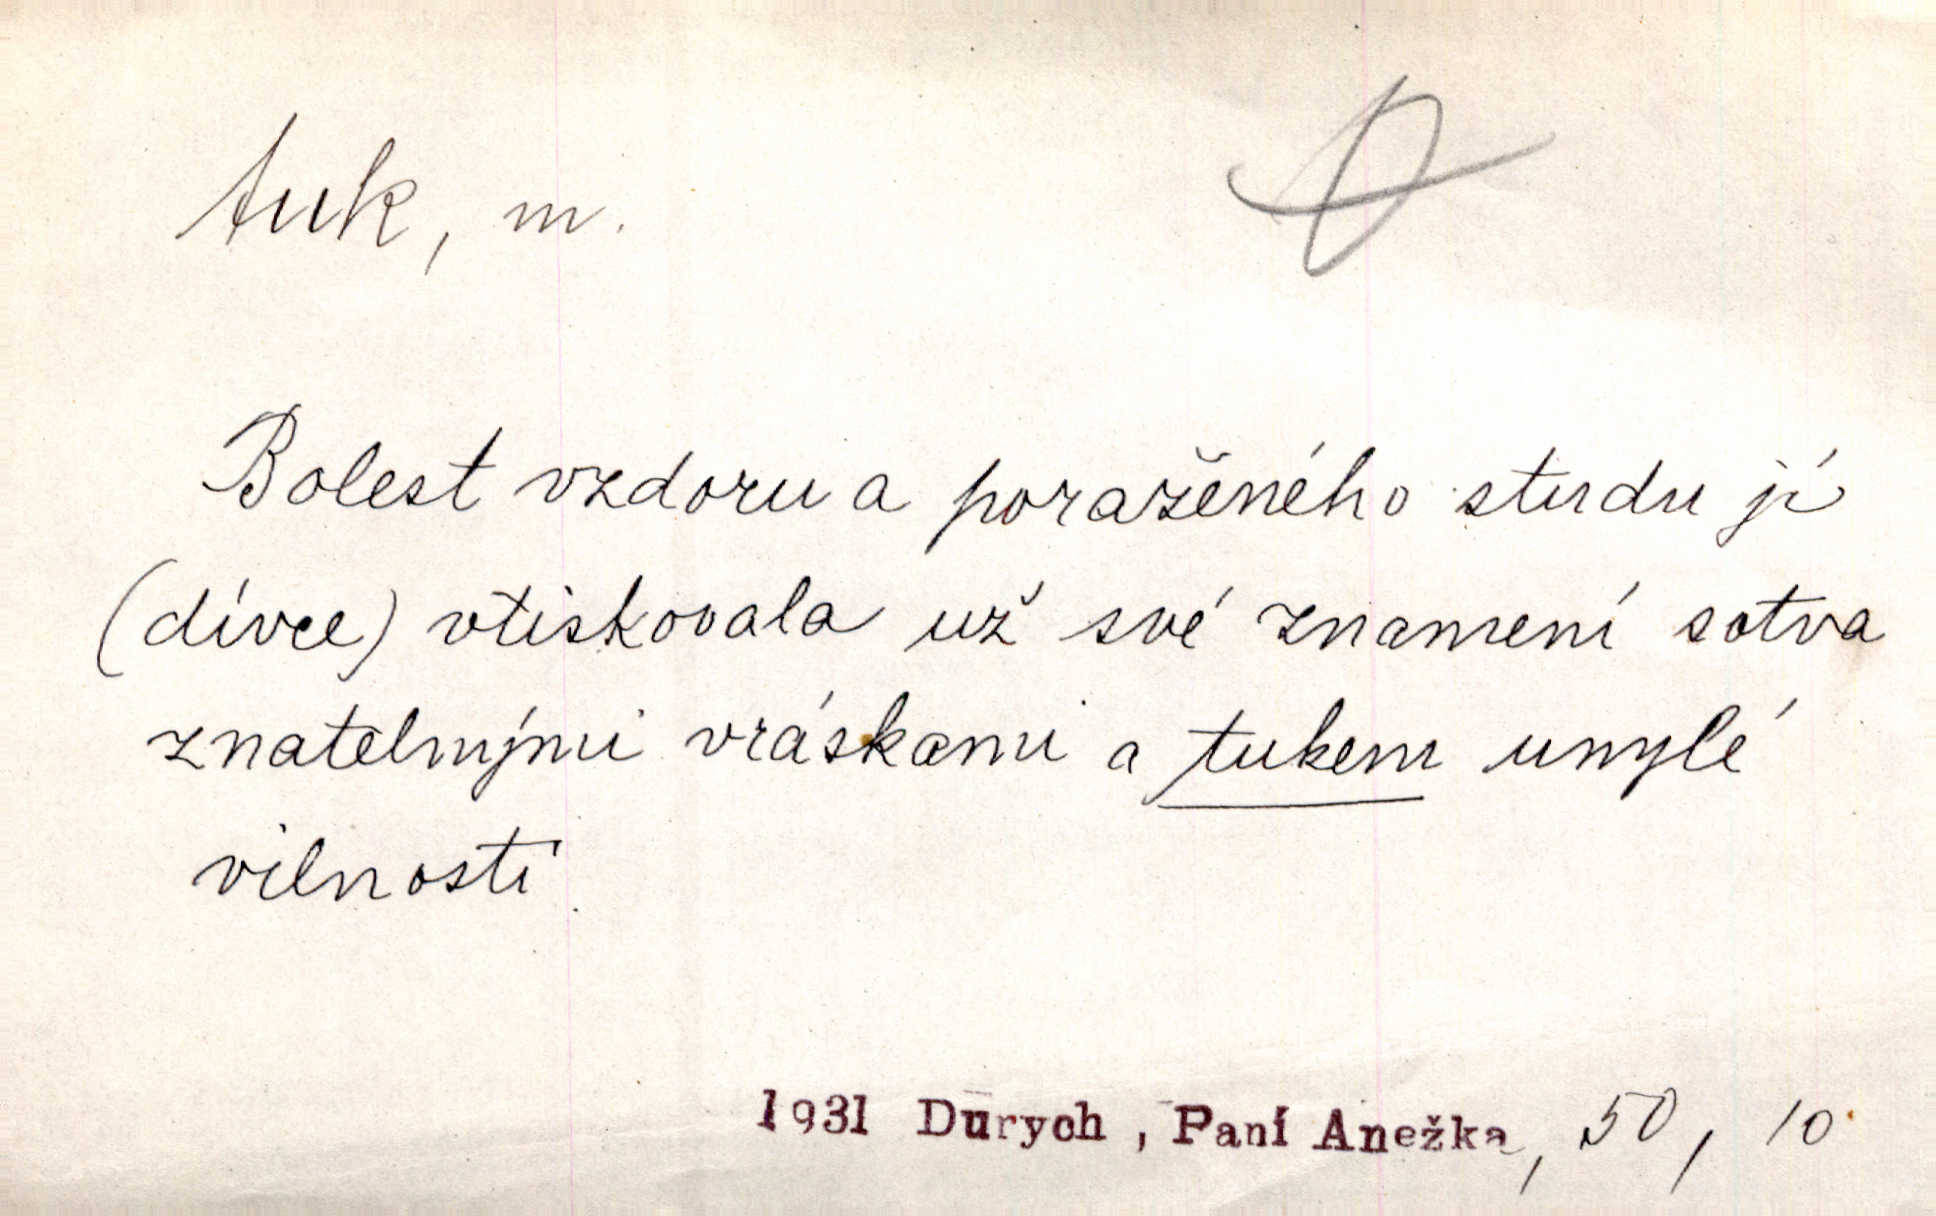 tuk, m.
Bolest vzdoru a poraženého studu jí
(dívce) vtiskovala už své znamení sotva
znatelnými vráskami a tukem unylé
vilnosti.
1931 Durych, Paní Anežka, 50, 10